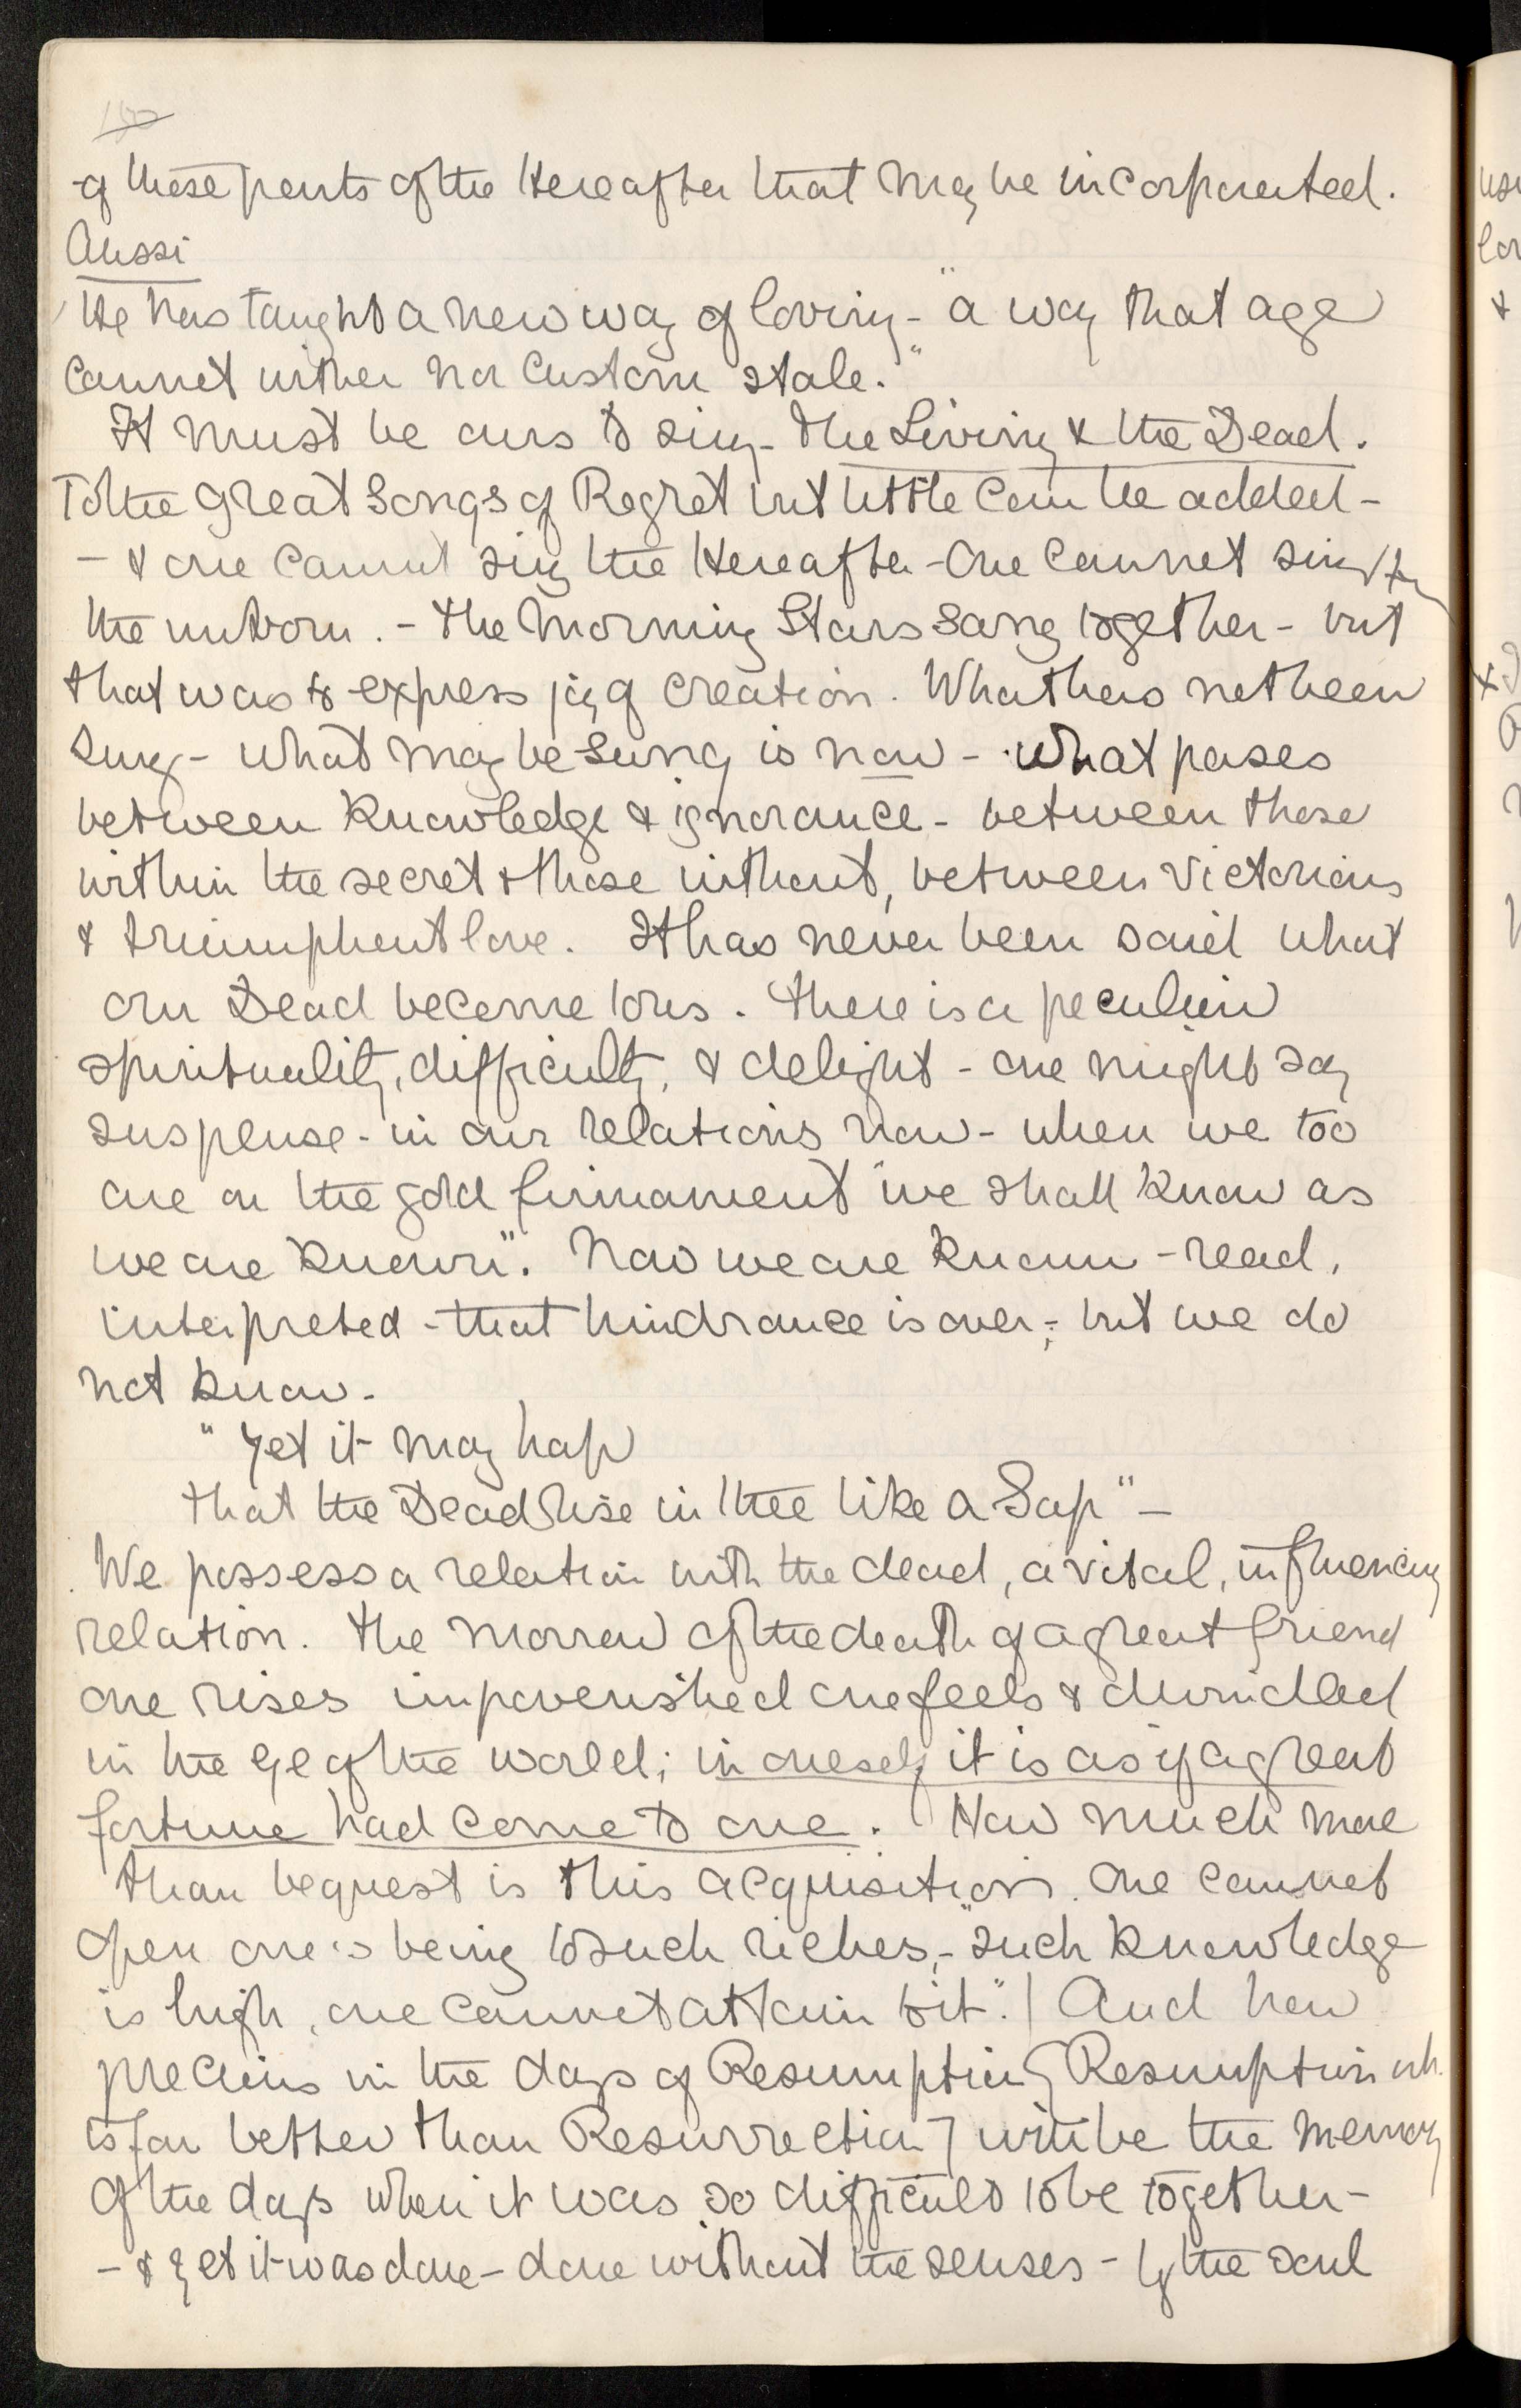 of those parts of the Hereafter that may be incorporated.
Aussi
He has taught a new way of loving - "a way that age
cannot wither nor custom stale."
It must be ours to sing - the Living & the Dead.
To the great songs of Regret but little can be added -
- & one cannot sing the Hereafter - one cannot sing
the unborn. - The Morning Stars sang together - but
that was to express joy of creation. What has not been
sung - what may be sung is now - what passes
between knowledge & ignorance - between those
within the secret & those without, between victorious
& triumphant love. It has never been said what
our Dead become to us. There is a peculiar
spirituality, difficulty, & delight - one might say
suspense - in our relations now - when we too
are on the gold firmament "we shall know as
we are known". Now we are known - read,
interpreted - that hindrance is over; - but we do
not know -
"Yet it may hap
that the Dead rise in thee like a Sap" -
We possess a relation with the dead, a vital, influencing
relation. The morrow of the death of a great friend
one rises impoverished one feels & dwindled
in the eye of the world; in oneself it is as if a great
fortune had come to one. How much more
than bequest is this acquisition. One cannot
open one's being to such riches, - "such knowledge
is high, one cannot attain to it". And how
precious in the days of Resumption [Resumption wh.
is far better than Resurrection] will be the memory
of the days when it was so difficult to be together -
- & yet it was done - done without the senses - by the soul